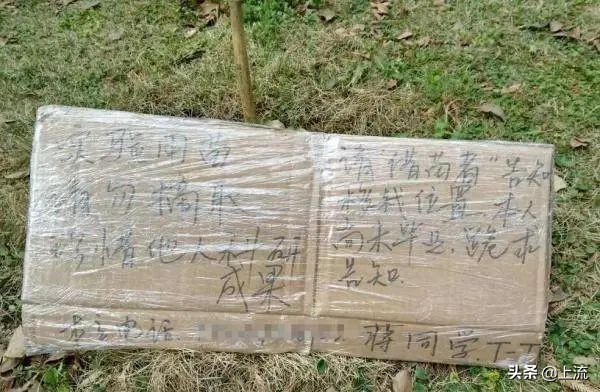 实验用苗
请勿摘取
珍惜他人科研
成果
请"借苗者"告知
移栽位置,本人
尚未毕业,跪求
告知.
苗主电话: 蒋同学.T-T
头条 @上流